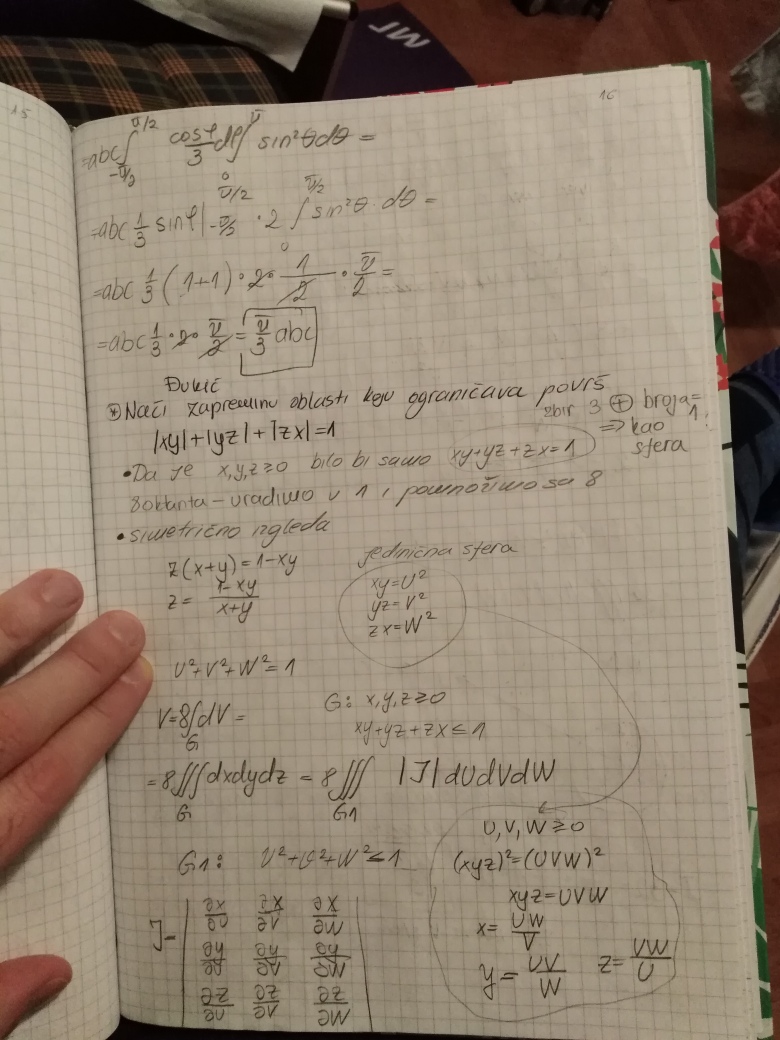 МГ
15
16
=abc ∫_{-π/2}^{π/2} cosφ/3 dφ ∫_0^π sin²θ dθ =
=abc 1/3 sinφ |_{-π/2}^{π/2} · 2 ∫_0^{π/2} sin²θ dθ =
=abc 1/3 (1+1) · 2 · 1/2 · π/2 =
=abc 1/3 · 2 · π/2 = π/3 abc
Đukić
* Naći zapreminu oblasti koju ograničava površ
|xy|+|yz|+|zx|=1
zbir 3 ⊕ broja=1
⇒ kao
sfera
• Da je x,y,z≥0 bilo bi samo xy+yz+zx=1
8 oktanta – uradimo u 1 i pomnožimo sa 8
• simetrično izgleda
z(x+y)=1-xy
z= (1-xy)/(x+y)
jedinična sfera
xy=U²
yz=V²
zx=W²
U²+V²+W²=1
V=8∫_G dV =
G: x,y,z≥0
xy+yz+zx≤1
=8∭_G dxdydz = 8∭_{G1} |J| dUdVdW
G1: U²+V²+W²≤1
U,V,W≥0
(xyz)²=(UVW)²
xyz=UVW
x= UW/V
y= UV/W z= VW/U
J= | ∂x/∂U ∂x/∂V ∂x/∂W |
| ∂y/∂U ∂y/∂V ∂y/∂W |
| ∂z/∂U ∂z/∂V ∂z/∂W |